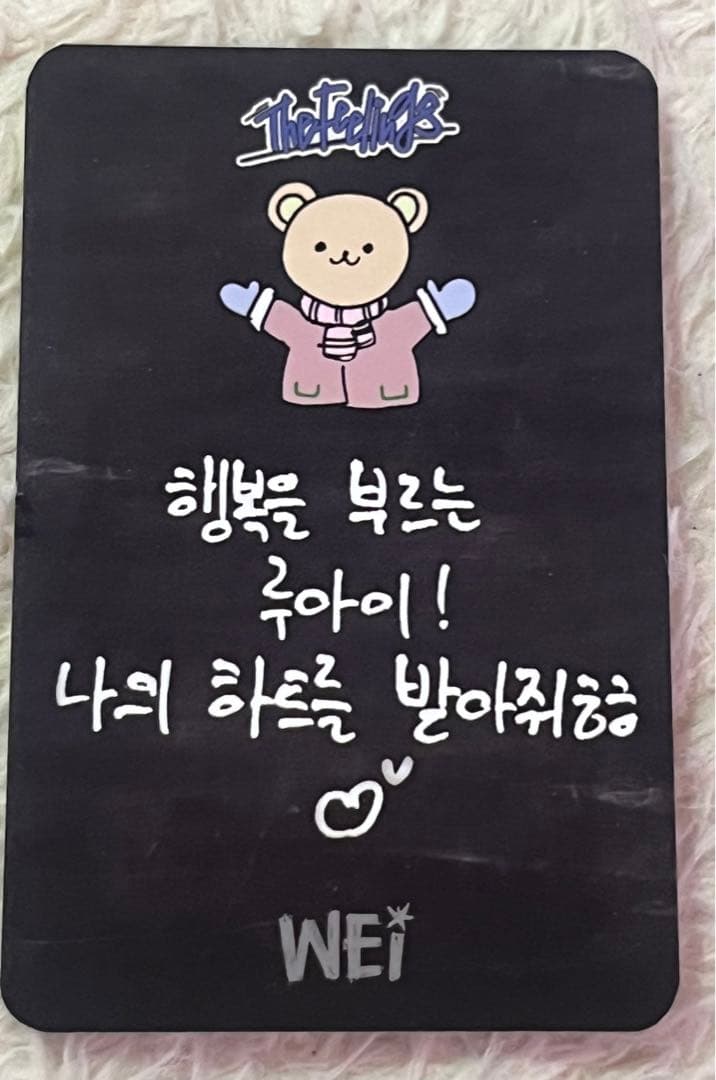 The Feelings
행복을 부르는
루아이!
나의 하트를 발아줘흐흠
WEi